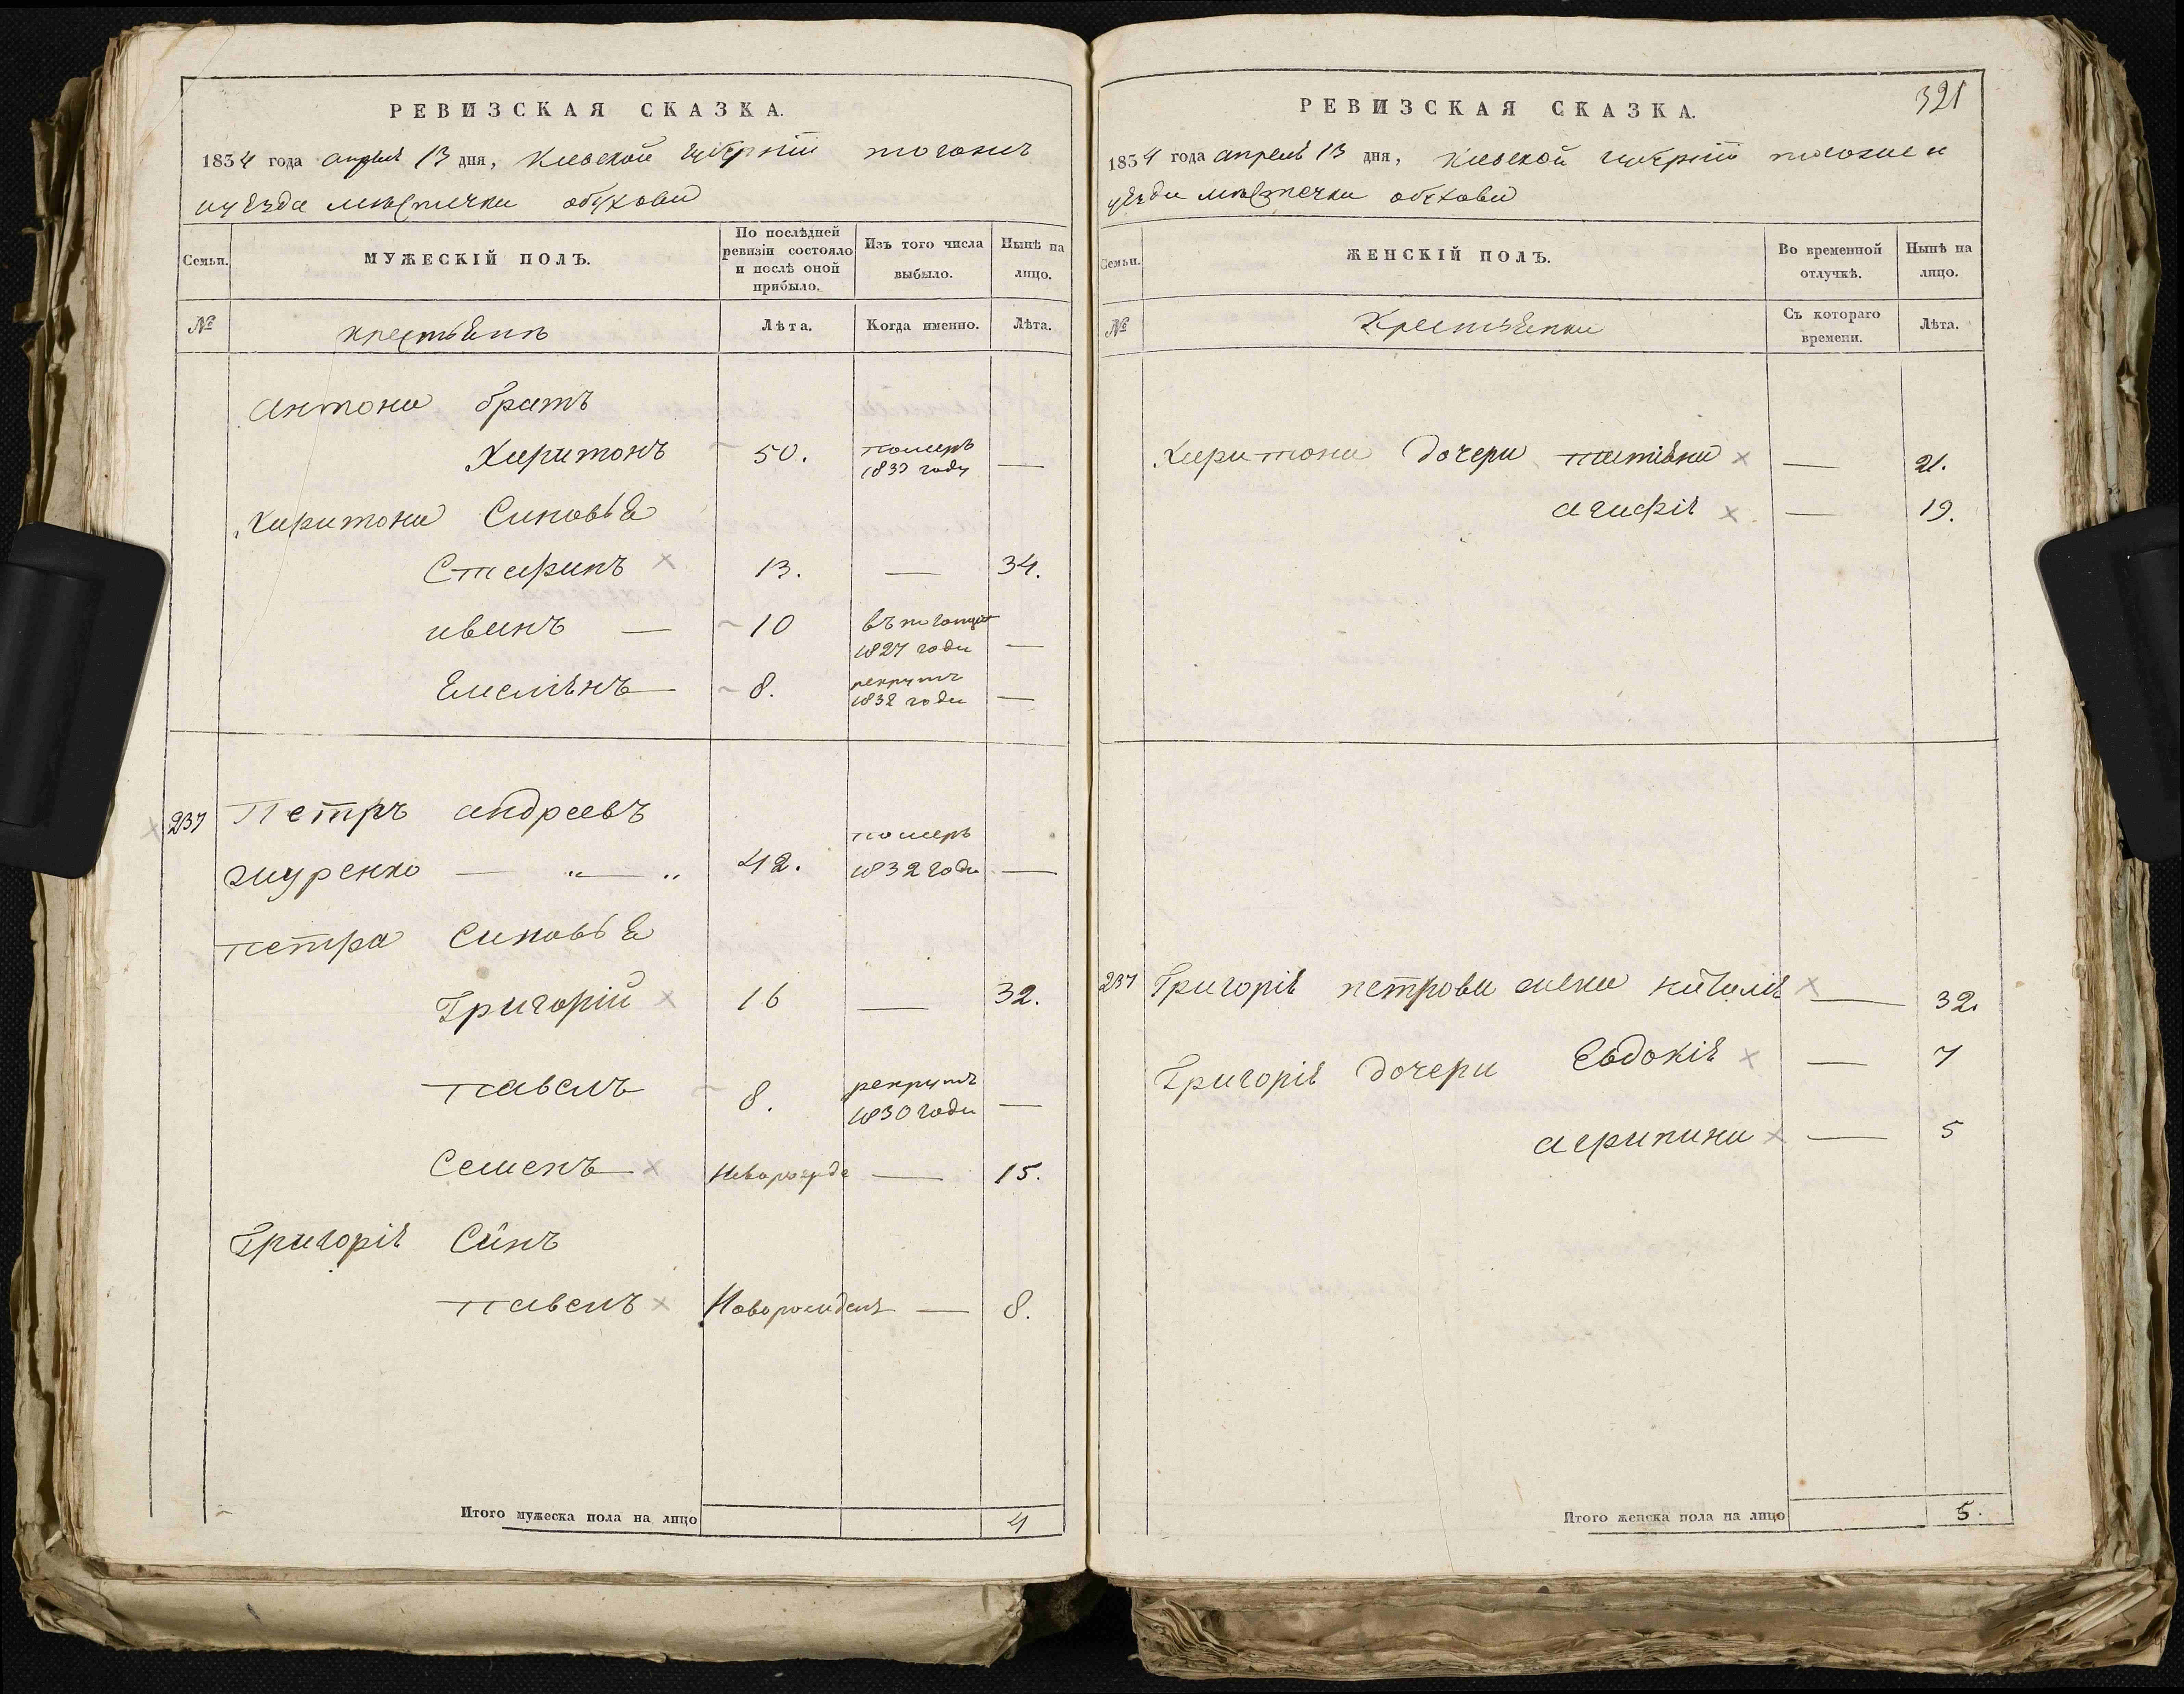 РЕВИЗСКАЯ СКАЗКА.
1834 года апреля 13 дня, Киевской губернии
уезда местечка обухова
Семьи.
МУЖЕСКІЙ ПОЛЪ.
По послѣдней ревизіи состояло и послѣ оной прибыло.
Изъ того числа выбыло.
Нынѣ на лицо.
№
крестьяне
Лѣта.
Когда именно.
Лѣта.
Антона братъ
Харитонъ 50. померъ 1833 году —
Харитона Синовья
Стахрипъ 13. — 34.
иванъ — 10 1827 года —
Емелянъ — 8. рекрутъ 1832 года —
237 Петръ андреевъ
журенко — " — " 42. померъ 1832 года —
петра Синовья
Григорій 16 — 32.
павелъ 8. рекрутъ 1830 года —
Семенъ — 15.
Григорія Синъ
павелъ Новорожденъ — 8.
Итого мужеска пола на лицо 4
321
РЕВИЗСКАЯ СКАЗКА.
1834 года апреля 13 дня, Киевской губернии
уезда местечка обухова
Семьи.
ЖЕНСКІЙ ПОЛЪ.
Во временной отлучкѣ.
Нынѣ на лицо.
№
Крестьянки
Съ котораго времени.
Лѣта.
Харитона дочери — 21.
агафія — 19.
237 Григорія петрова жена наталія — 32.
Григорія дочери Евдокія — 7
агрипина — 5
Итого женска пола на лицо 5.